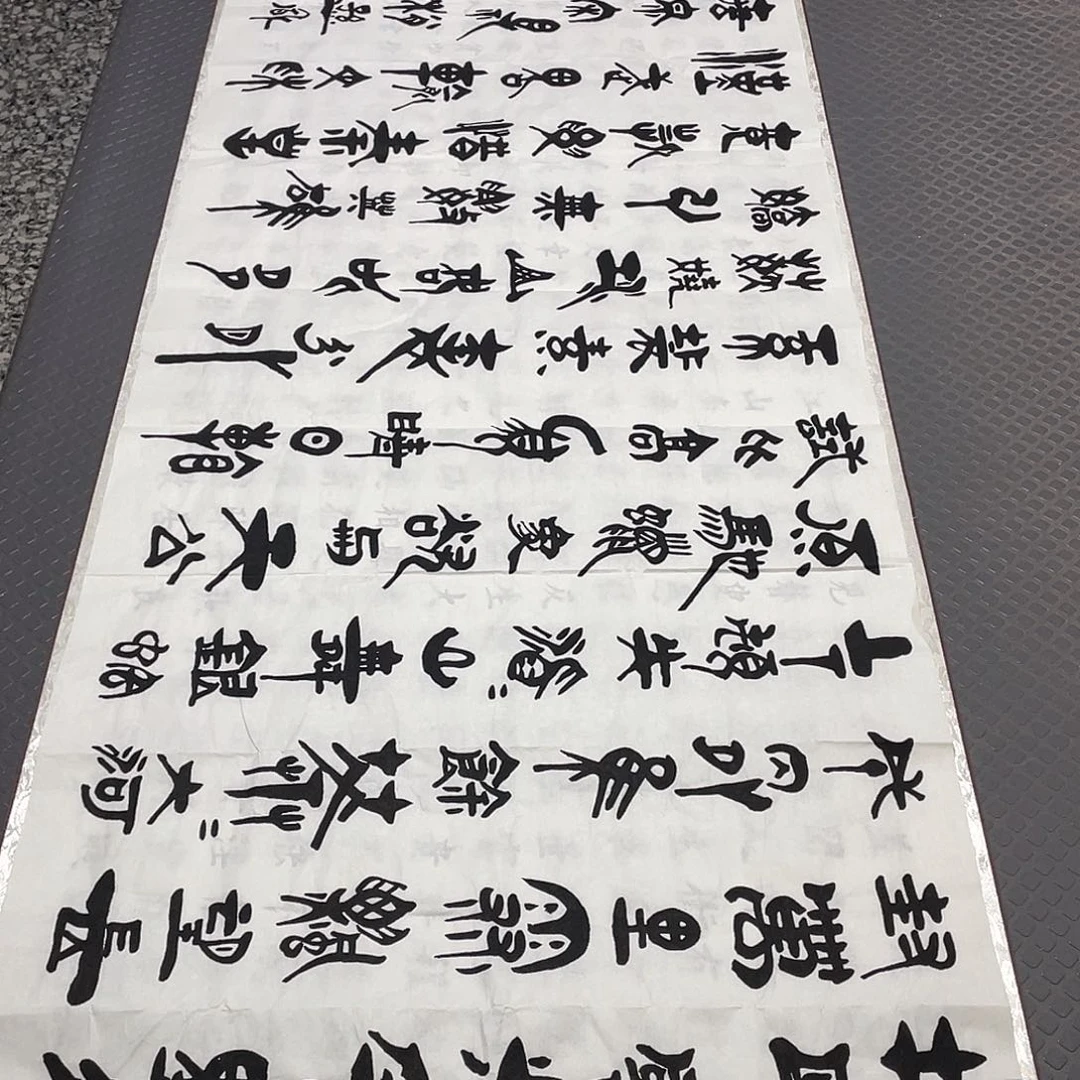 封萬里雪飄望長
城内外惟餘莽=大河
上下頓失滔=山舞銀蛇
原馳蠟象欲與天公
試比高須晴日看
紅裝素裹分外
妖嬈江山如此多
嬌引無數英雄
競折腰惜秦皇
漢武略輸文采